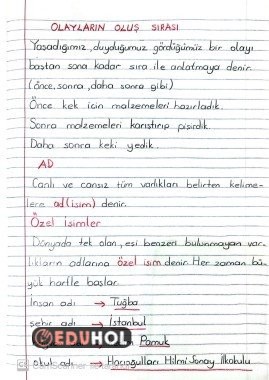 OLAYLARIN OLUŞ SIRASI
Yaşadığımız, duyduğumuz gördüğümüz bir olayı
baştan sona kadar sıra ile anlatmaya denir.
(önce, sonra, daha sonra gibi)
Önce kek için malzemeleri hazırladık.
Sonra malzemeleri karıştırıp pişirdik.
Daha sonra keki yedik.
AD
Canlı ve cansız tüm varlıkları belirten kelime-
lere ad (isim) denir.
Özel isimler
Dünyada tek olan, eşi benzeri bulunmayan var-
lıkların adlarına özel isim denir. Her zaman bü-
yük harfle başlar.
İnsan adı → Tuğba
şehir adı → İstanbul
EDUHOL
Pamuk
okul adı → Hacıoğulları Hilmi Sonay İlkokulu
CamScanner